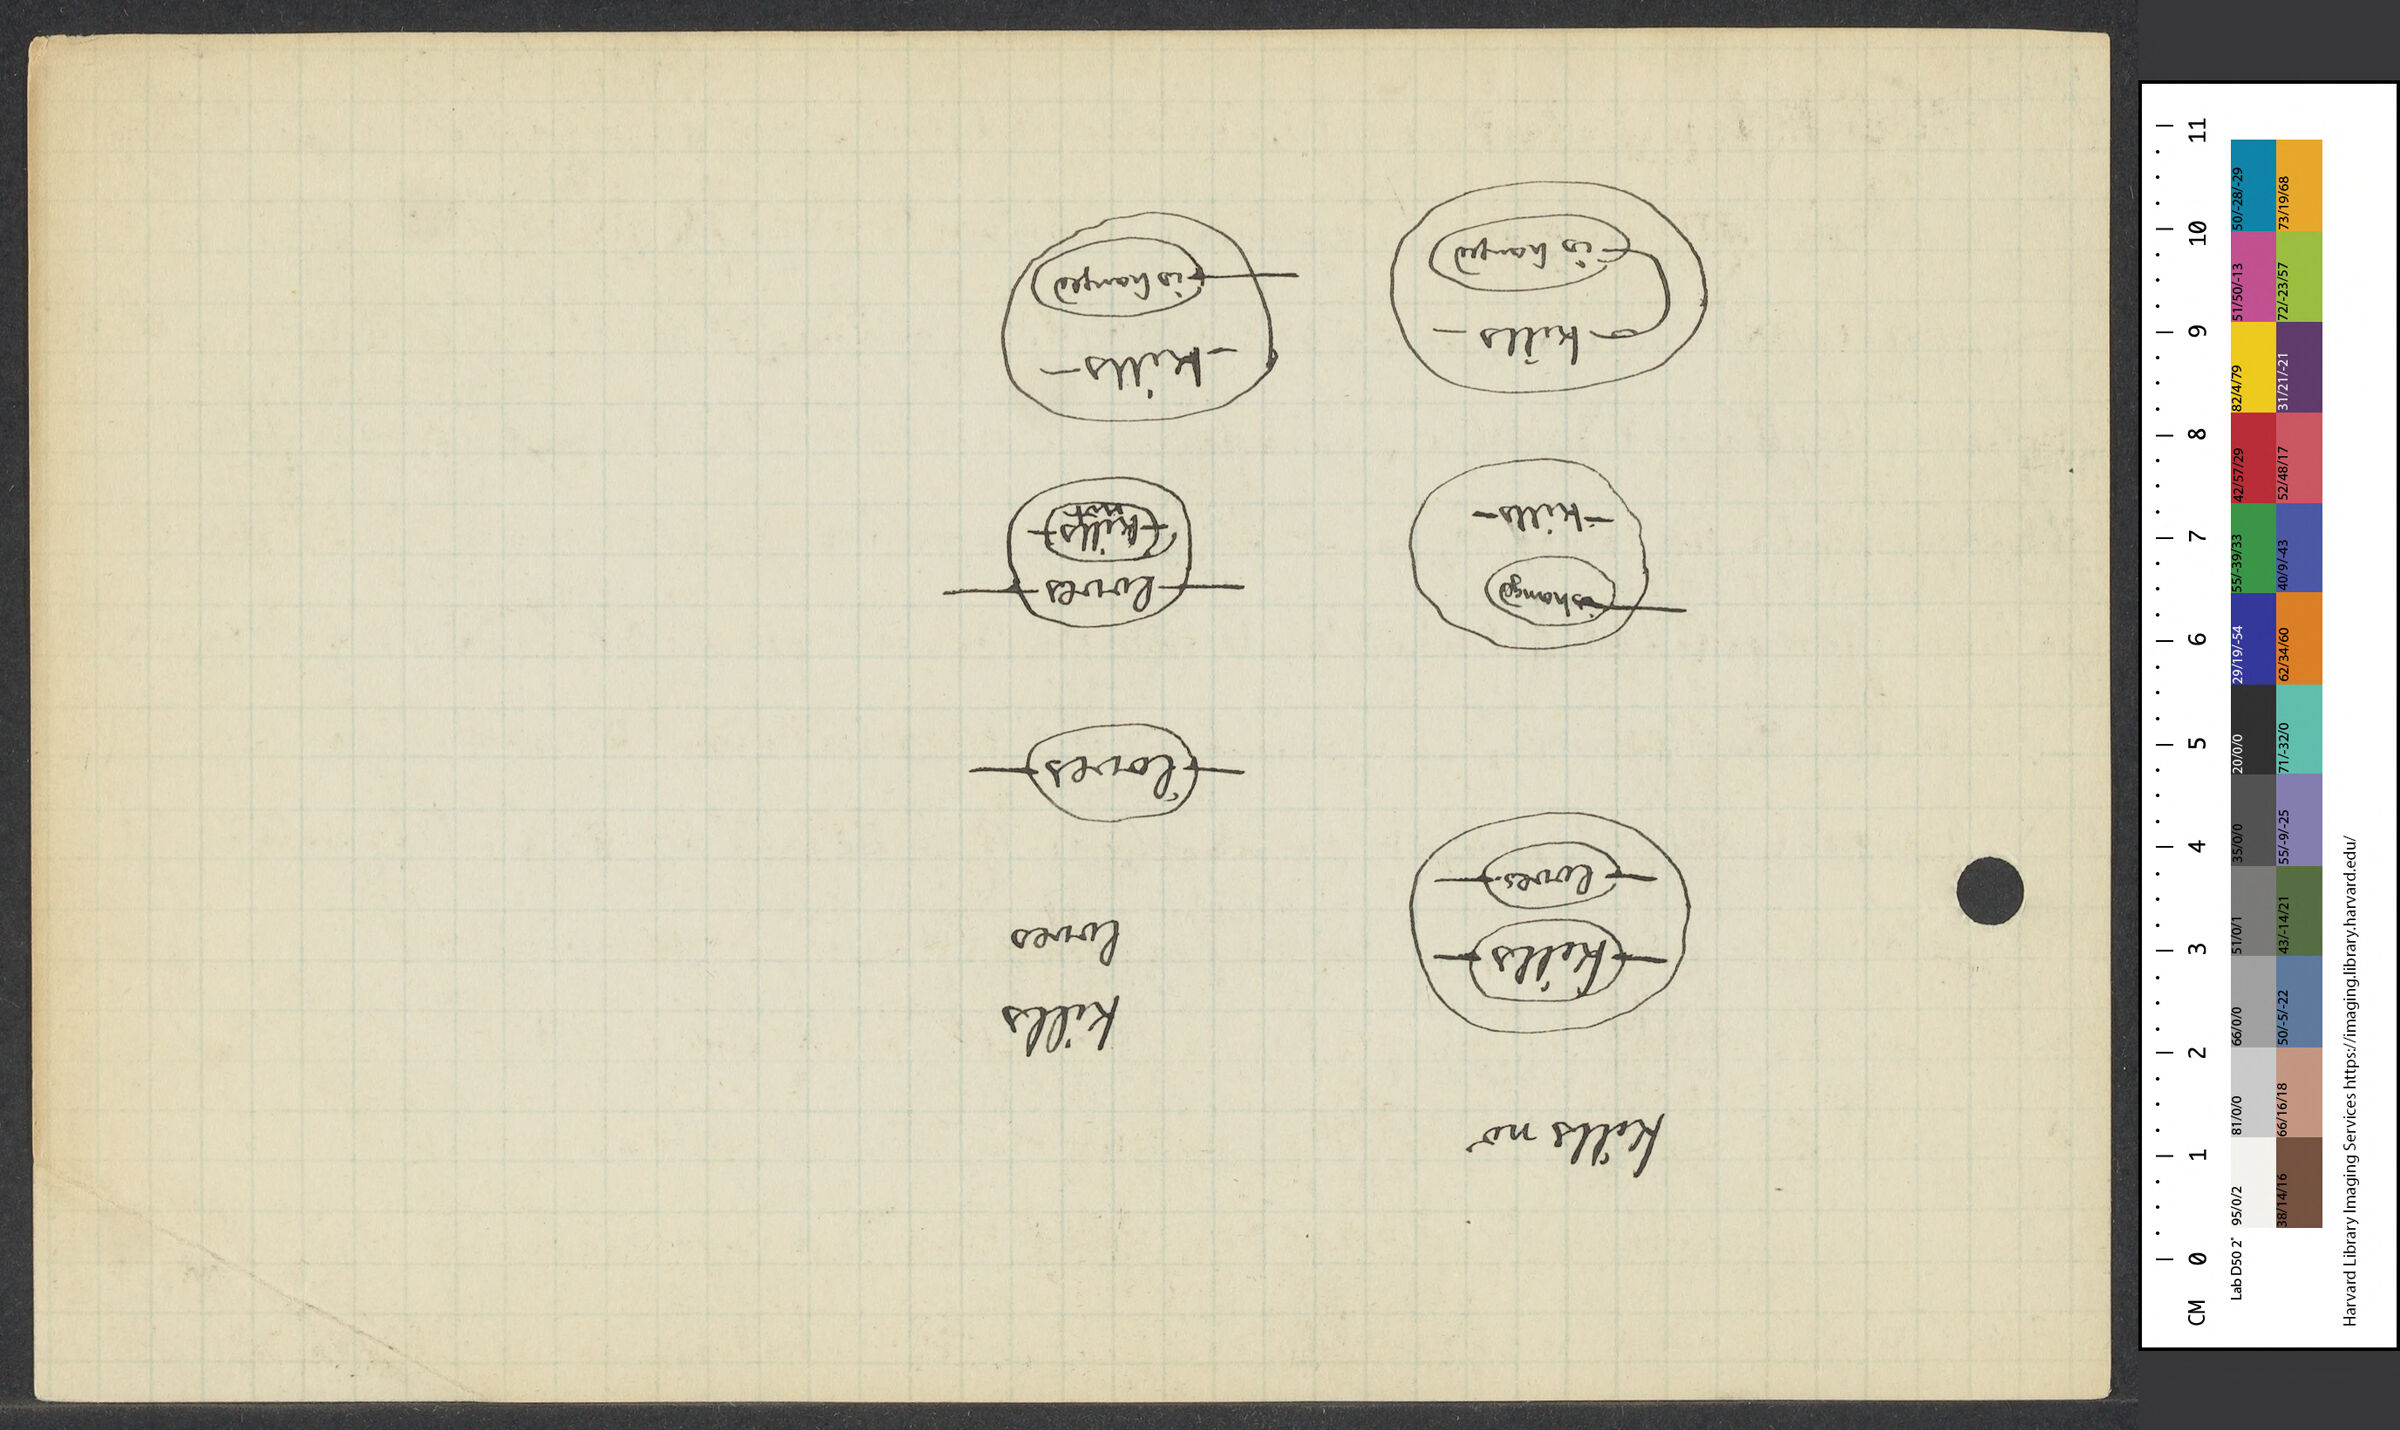 kills no
kills
loves
is hangd
kills
kills
is hanged
kills
loves
loves
loves
kills
not
kills
is hanged
CM 0 1 2 3 4 5 6 7 8 9 10 11
LabD50 2° 95/0/2 81/0/0 66/0/0 51/0/1 35/0/0 20/0/0 29/19/-54 55/-39/33 42/57/29 82/4/79 51/50/-13 50/-28/-29
38/14/16 66/16/18 50/-5/-22 43/-14/21 55/-9/-25 71/-32/0 62/34/60 40/9/-43 52/48/17 31/21/-21 72/-23/57 73/19/68
Harvard Library Imaging Services https://imaging.library.harvard.edu/